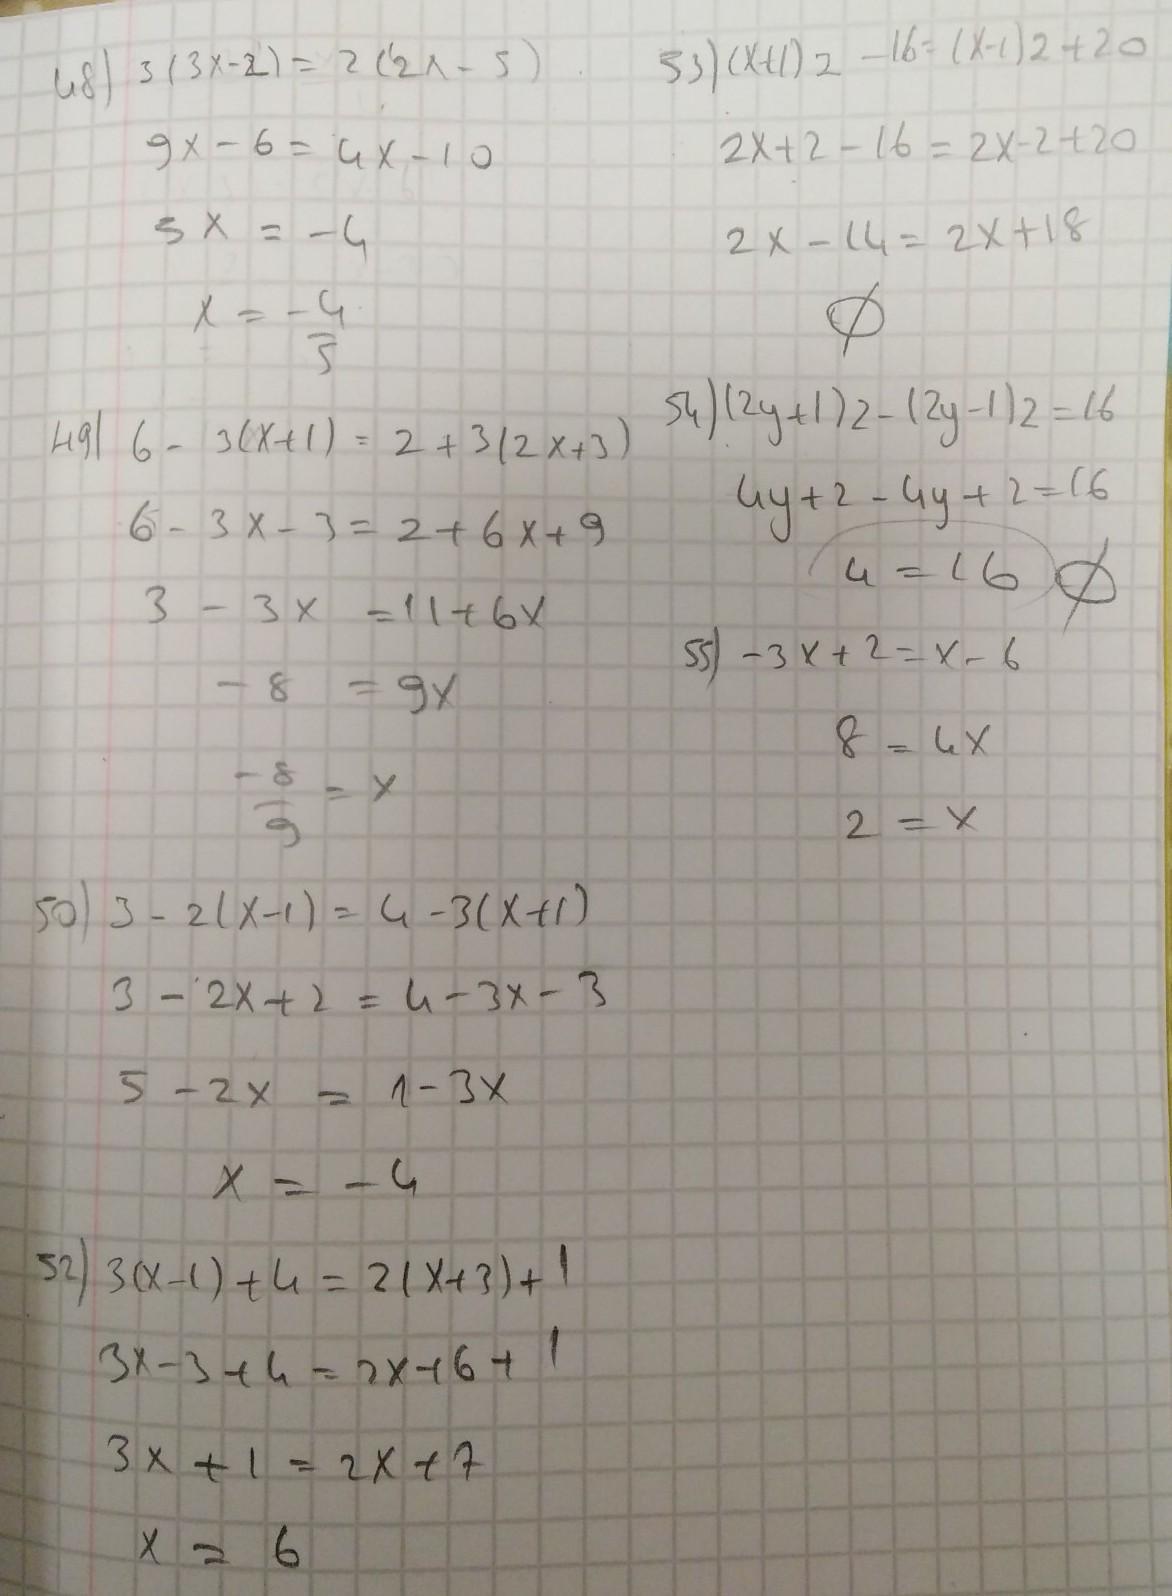 48) 3(3x-2) = 2(2x-5)
9x-6 = 4x-10
5x = -4
x = -4/5
49) 6 - 3(x+1) = 2+3(2x+3)
6 - 3x - 3 = 2+6x+9
3 - 3x = 11+6x
-8 = 9x
-8/9 = x
50) 3 - 2(x-1) = 4 - 3(x+1)
3 - 2x+2 = 4-3x-3
5 - 2x = 1-3x
x = -4
52) 3(x-1)+4 = 2(x+3)+1
3x-3+4 = 2x+6+1
3x+1 = 2x+7
x = 6
53) (x+1)2 -16 = (x-1)2+20
2x+2-16 = 2x-2+20
2x-14 = 2x+18
∅
54) (2y+1)2-(2y-1)2 = 16
4y+2-4y+2 = 16
4 = 16 ∅
55) -3x+2 = x-6
8 = 4x
2 = x